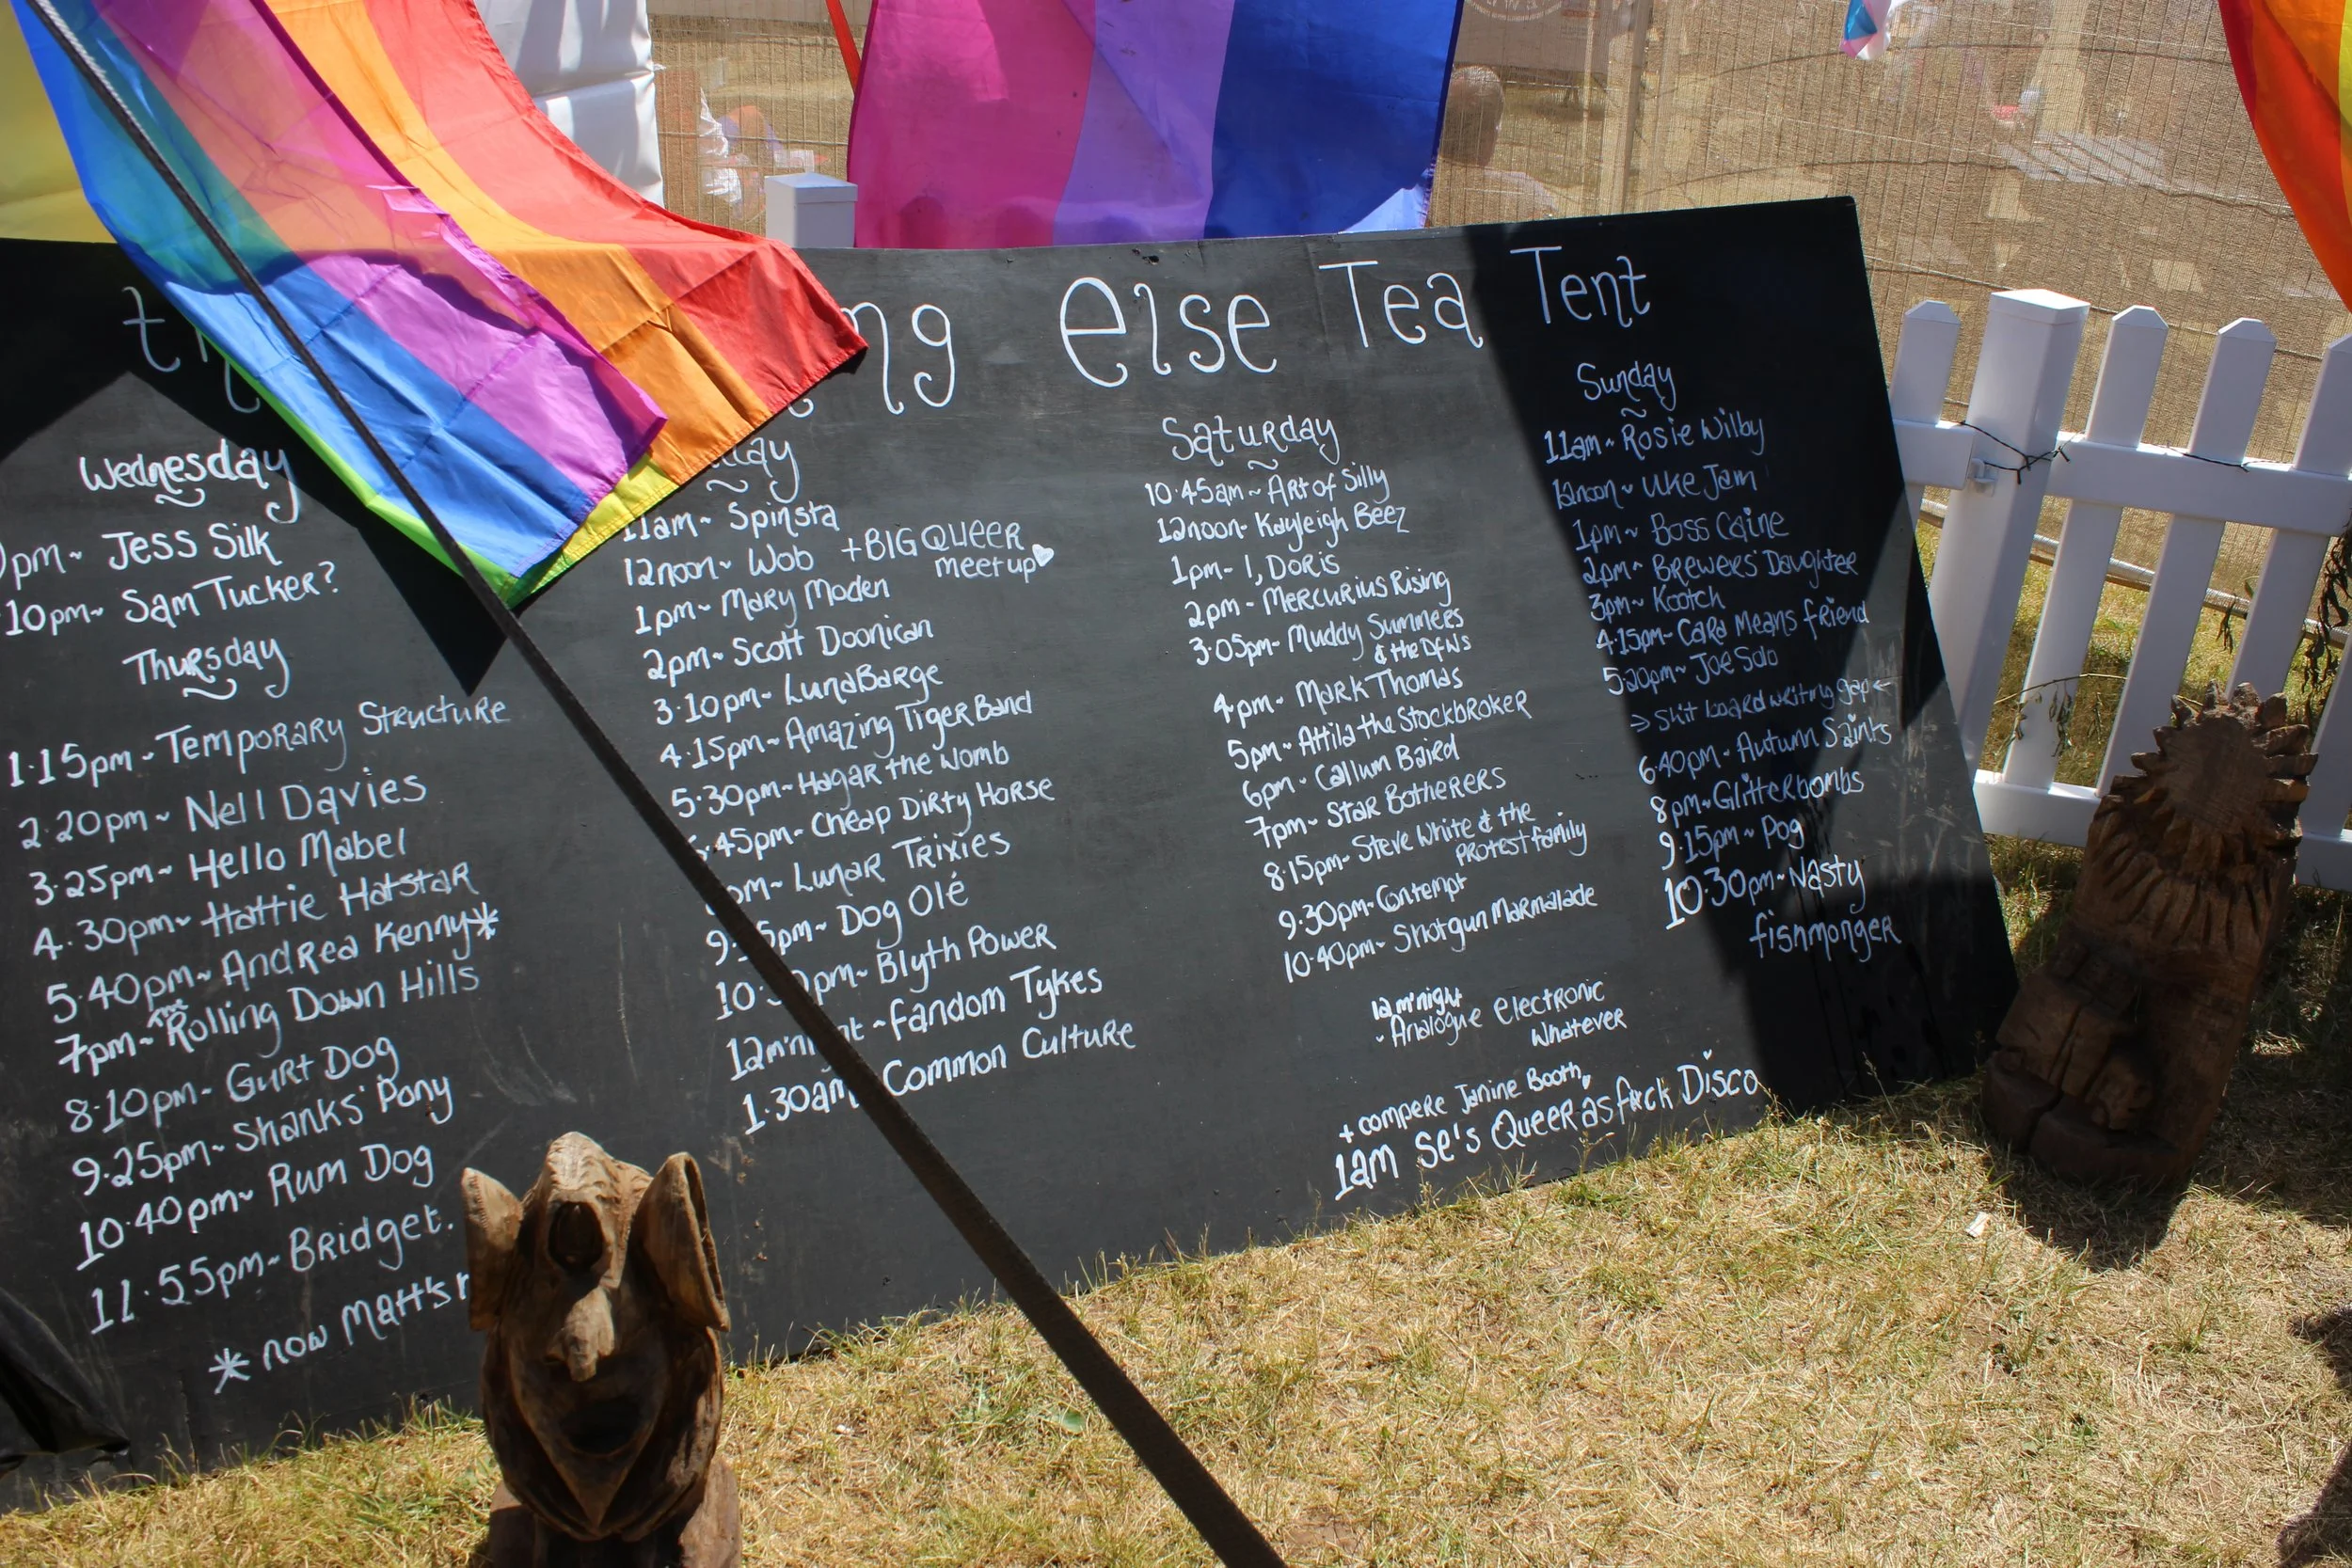 else Tea Tent
Wednesday
pm~ Jess Silk
10pm~ Sam Tucker?
Thursday
1.15pm~ Temporary Structure
2.20pm~ Nell Davies
3.25pm~ Hello Mabel
4.30pm~ Hattie Hatstar
5.40pm~ Andrea Kenny*
7pm~ Rolling Down Hills
8.10pm~ Gurt Dog
9.25pm~ Shanks' Pony
10.40pm~ Rum Dog
11.55pm~ Bridget.
* now Matt's
11am~ Spinsta
12noon~ Wob +BIG QUEER
meetup♡
1pm~ Mary Moden
2pm~ Scott Doonican
3.10pm~ LunaBarge
4.15pm~ Amazing Tiger Band
5.30pm~ Hagar the Womb
.45pm~ Cheap Dirty Horse
pm~ Lunar Trixies
pm~ Dog Olé
pm~ Blyth Power
~ Fandom Tykes
1.30am Common Culture
Saturday
10.45am~ Art of Silly
12noon~ Kayleigh Beez
1pm- I, Doris
2pm- Mercurius Rising
3.05pm~ Muddy Summers
& the DFWs
4pm~ Mark Thomas
5pm~ Attila the Stockbroker
6pm~ Callum Baird
7pm~ Star Botherers
8.15pm~ Steve White & the
Protest family
9.30pm~ Contempt
10.40pm~ Shotgun Marmalade
12m'night
~ Analogue Electronic
Whatever
+ compere Janine Booth,
1am Se's Queer as f*ck Disco
Sunday
11am~ Rosie Wilby
12noon~ Uke Jam
1pm~ Boss Caine
2pm~ Brewers' Daughter
3pm~ Kootch
4.15pm~ Cara Means friend
5.20pm~ Joe Solo
> Shit board writing gap <
6.40pm~ Autumn Saints
8pm~ Glitterbombs
9.15pm~ Pog
10.30pm~ Nasty
fishmonger